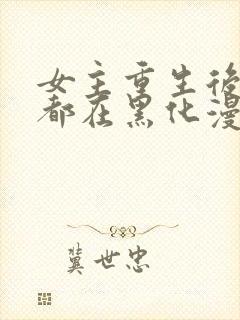 女主重生後
都在黑化漫
冀世忠